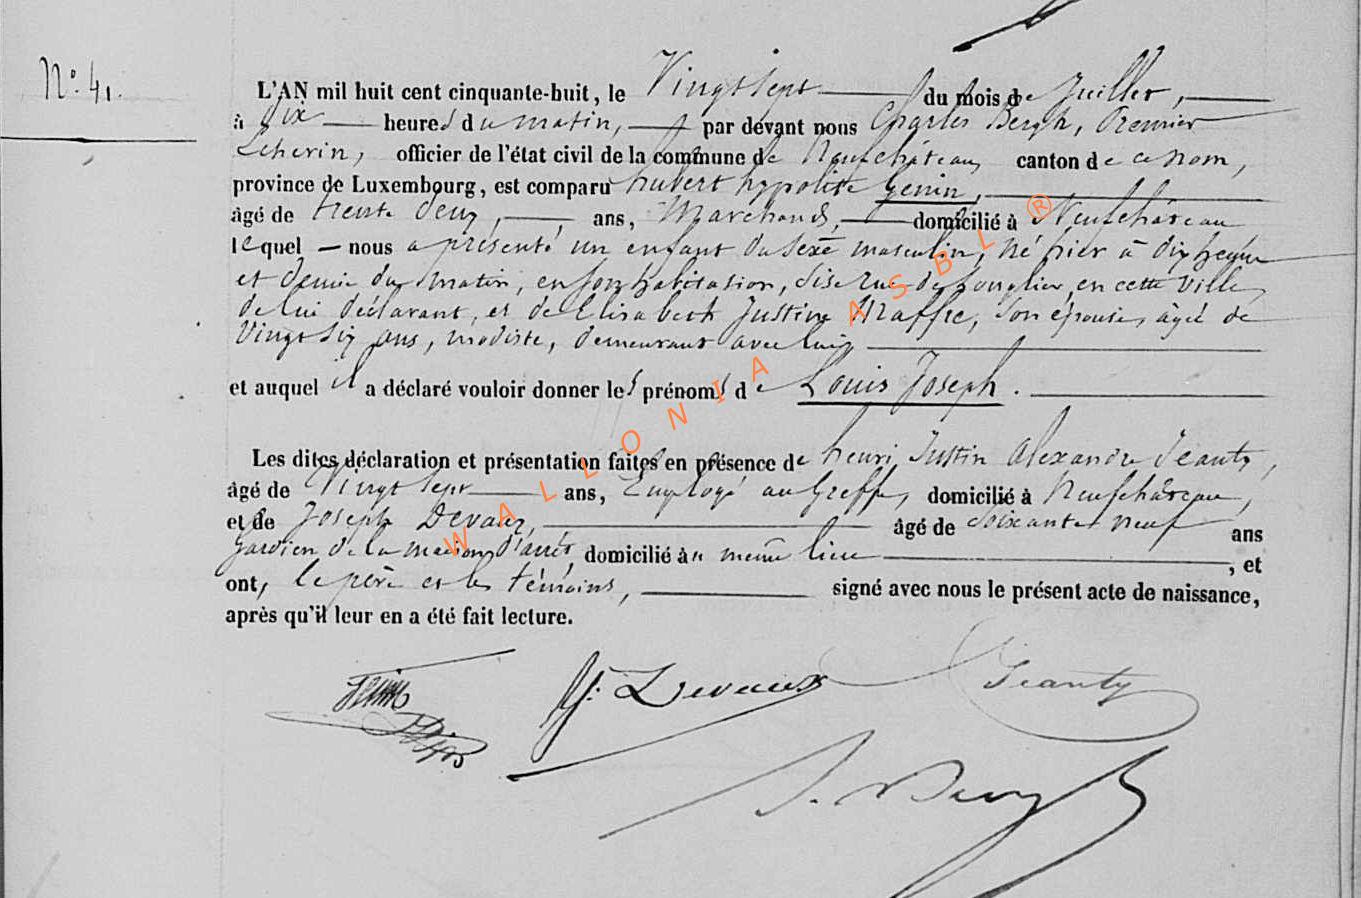 N°. 41.
L'AN mil huit cent cinquante-huit, le Vingt sept du mois de Juillet,
à dix heures du matin, par devant nous Charles Bergh, Premier
Echevin, officier de l'état civil de la commune de Neufchâteau, canton de ce nom,
province de Luxembourg, est comparu hubert hypolite Genin,
âgé de trente deux, ans, Marchand, domicilié à Neufchâteau
lequel nous a présenté un enfant du sexe masculin, né hier à dix heures
et demie du matin, en son habitation, sise rue de en cette ville,
de lui déclarant, et de Elisabeth Justine Maffre, son épouse, âgée de
Vingt six ans, modiste, demeurant avec lui,
et auquel il a déclaré vouloir donner les prénoms de Louis Joseph.
Les dites déclaration et présentation faites en présence de henri Justin Alexandre Jeanty,
âgé de Vingt sept ans, Employé au Greffe, domicilié à Neufchâteau,
et de Joseph Devaux, âgé de soixante neuf ans
Gardien de la maison d'arrêt, domicilié au même lieu , et
ont, le père et les témoins, signé avec nous le présent acte de naissance,
après qu'il leur en a été fait lecture.
Genin J. Devaux Jeanty
WALLONIA ASBL ®